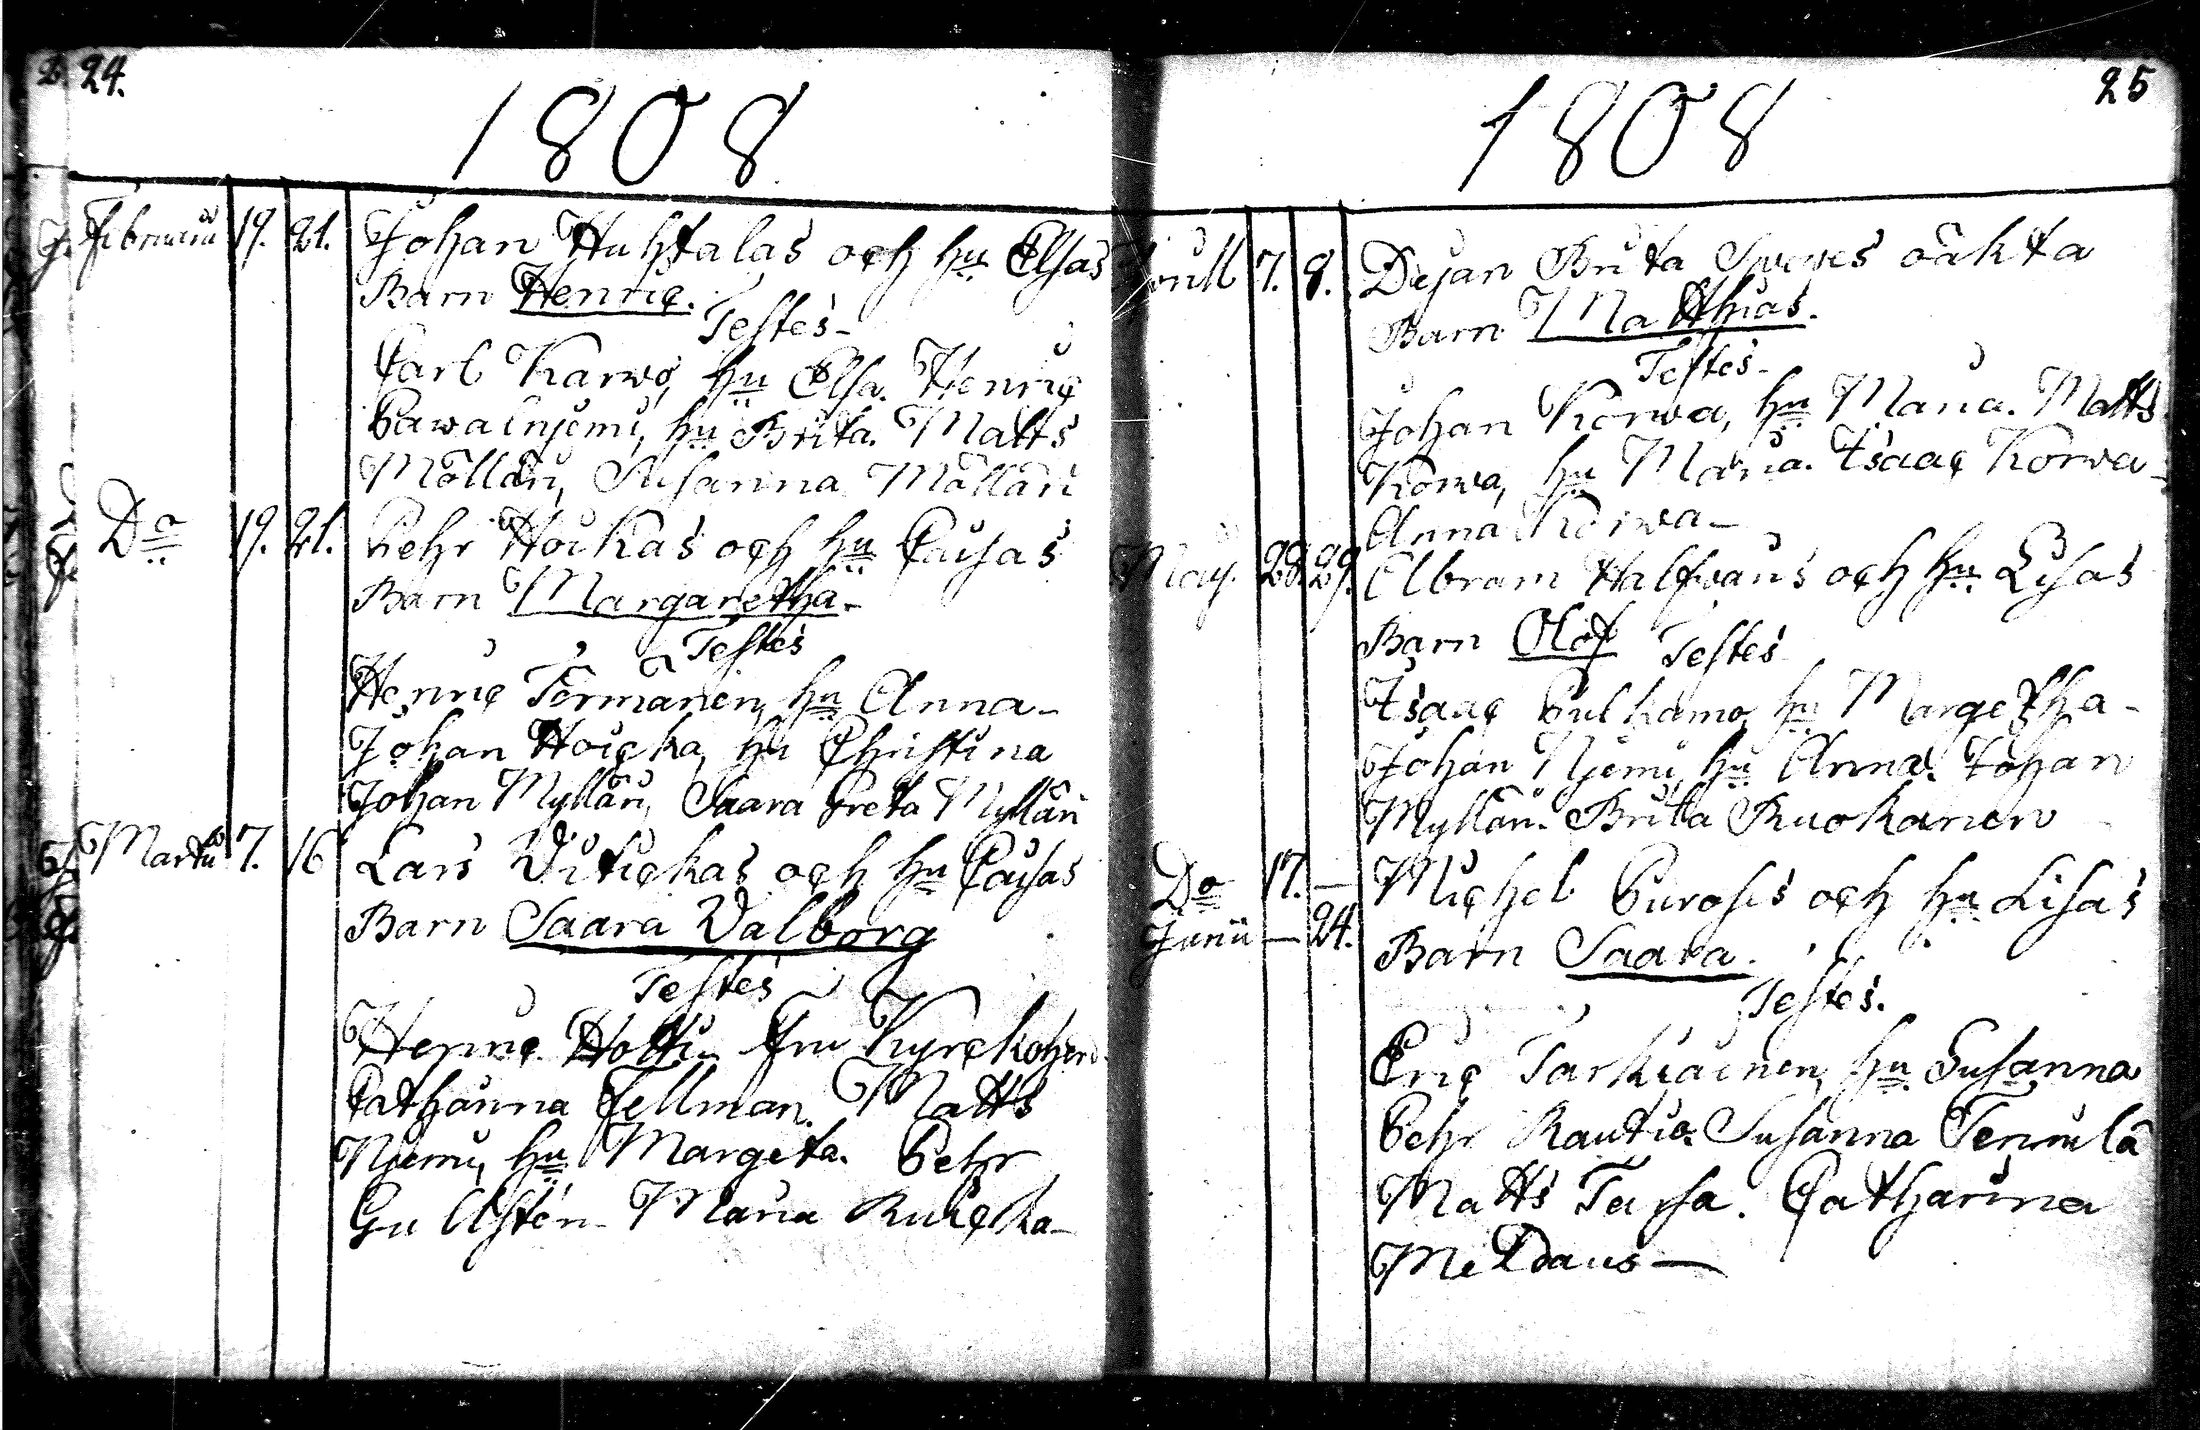 24.
1808
Februarii 19. 21. Johan Huhtalas och hu Elsas
Barn Henric.
Testes-
Carl Karwo, hu Elsa. Henric
Pawalnjemi, hu Brita. Matts
Mölläri, Susanna Mälläri
Do 19. 21. Pehr Hoikas och hu Caisas
Barn Margaretha-
Testes
Henric Törmänen, hu Anna-
Johan Hoicka, hu Christina
Johan Mylläri, Saara Greta Mylläri
Martii 7. 16 Lars Vitickas och hu Caisas
Barn Saara Valborg
Testes
Henric Holti- Fru Kyrckoher
Catharina Fellman. Matts
Njemi, hu Margeta. Pehr
Gullsten- Maria Kuicka-
25
1808
Aprill 7. 8. Dejan Brita Sweges oäkta
Barn Matthias.
Testes-
Johan Korwa, hu Maria. Matts
Korwa, hu Maria. Isaac Korwa-
Anna Korwa-
Maij. 28. 29. Abram Halfwaris och hu Lisas
Barn Olof Testes
Isaac Pulkamo, hu Margetha-
Johan Njemi, hu Anna. Johan
Mylläri. Brita Ruokanen
Do 17. - Michel Purosis och hu Lisas
Junii - 24. Barn Saara.
Testes.
Eric Tarkiainen, hu Susanna
Pehr Rautio. Susanna Termilä
Matts Tarsa. Catharina
Meldaus-